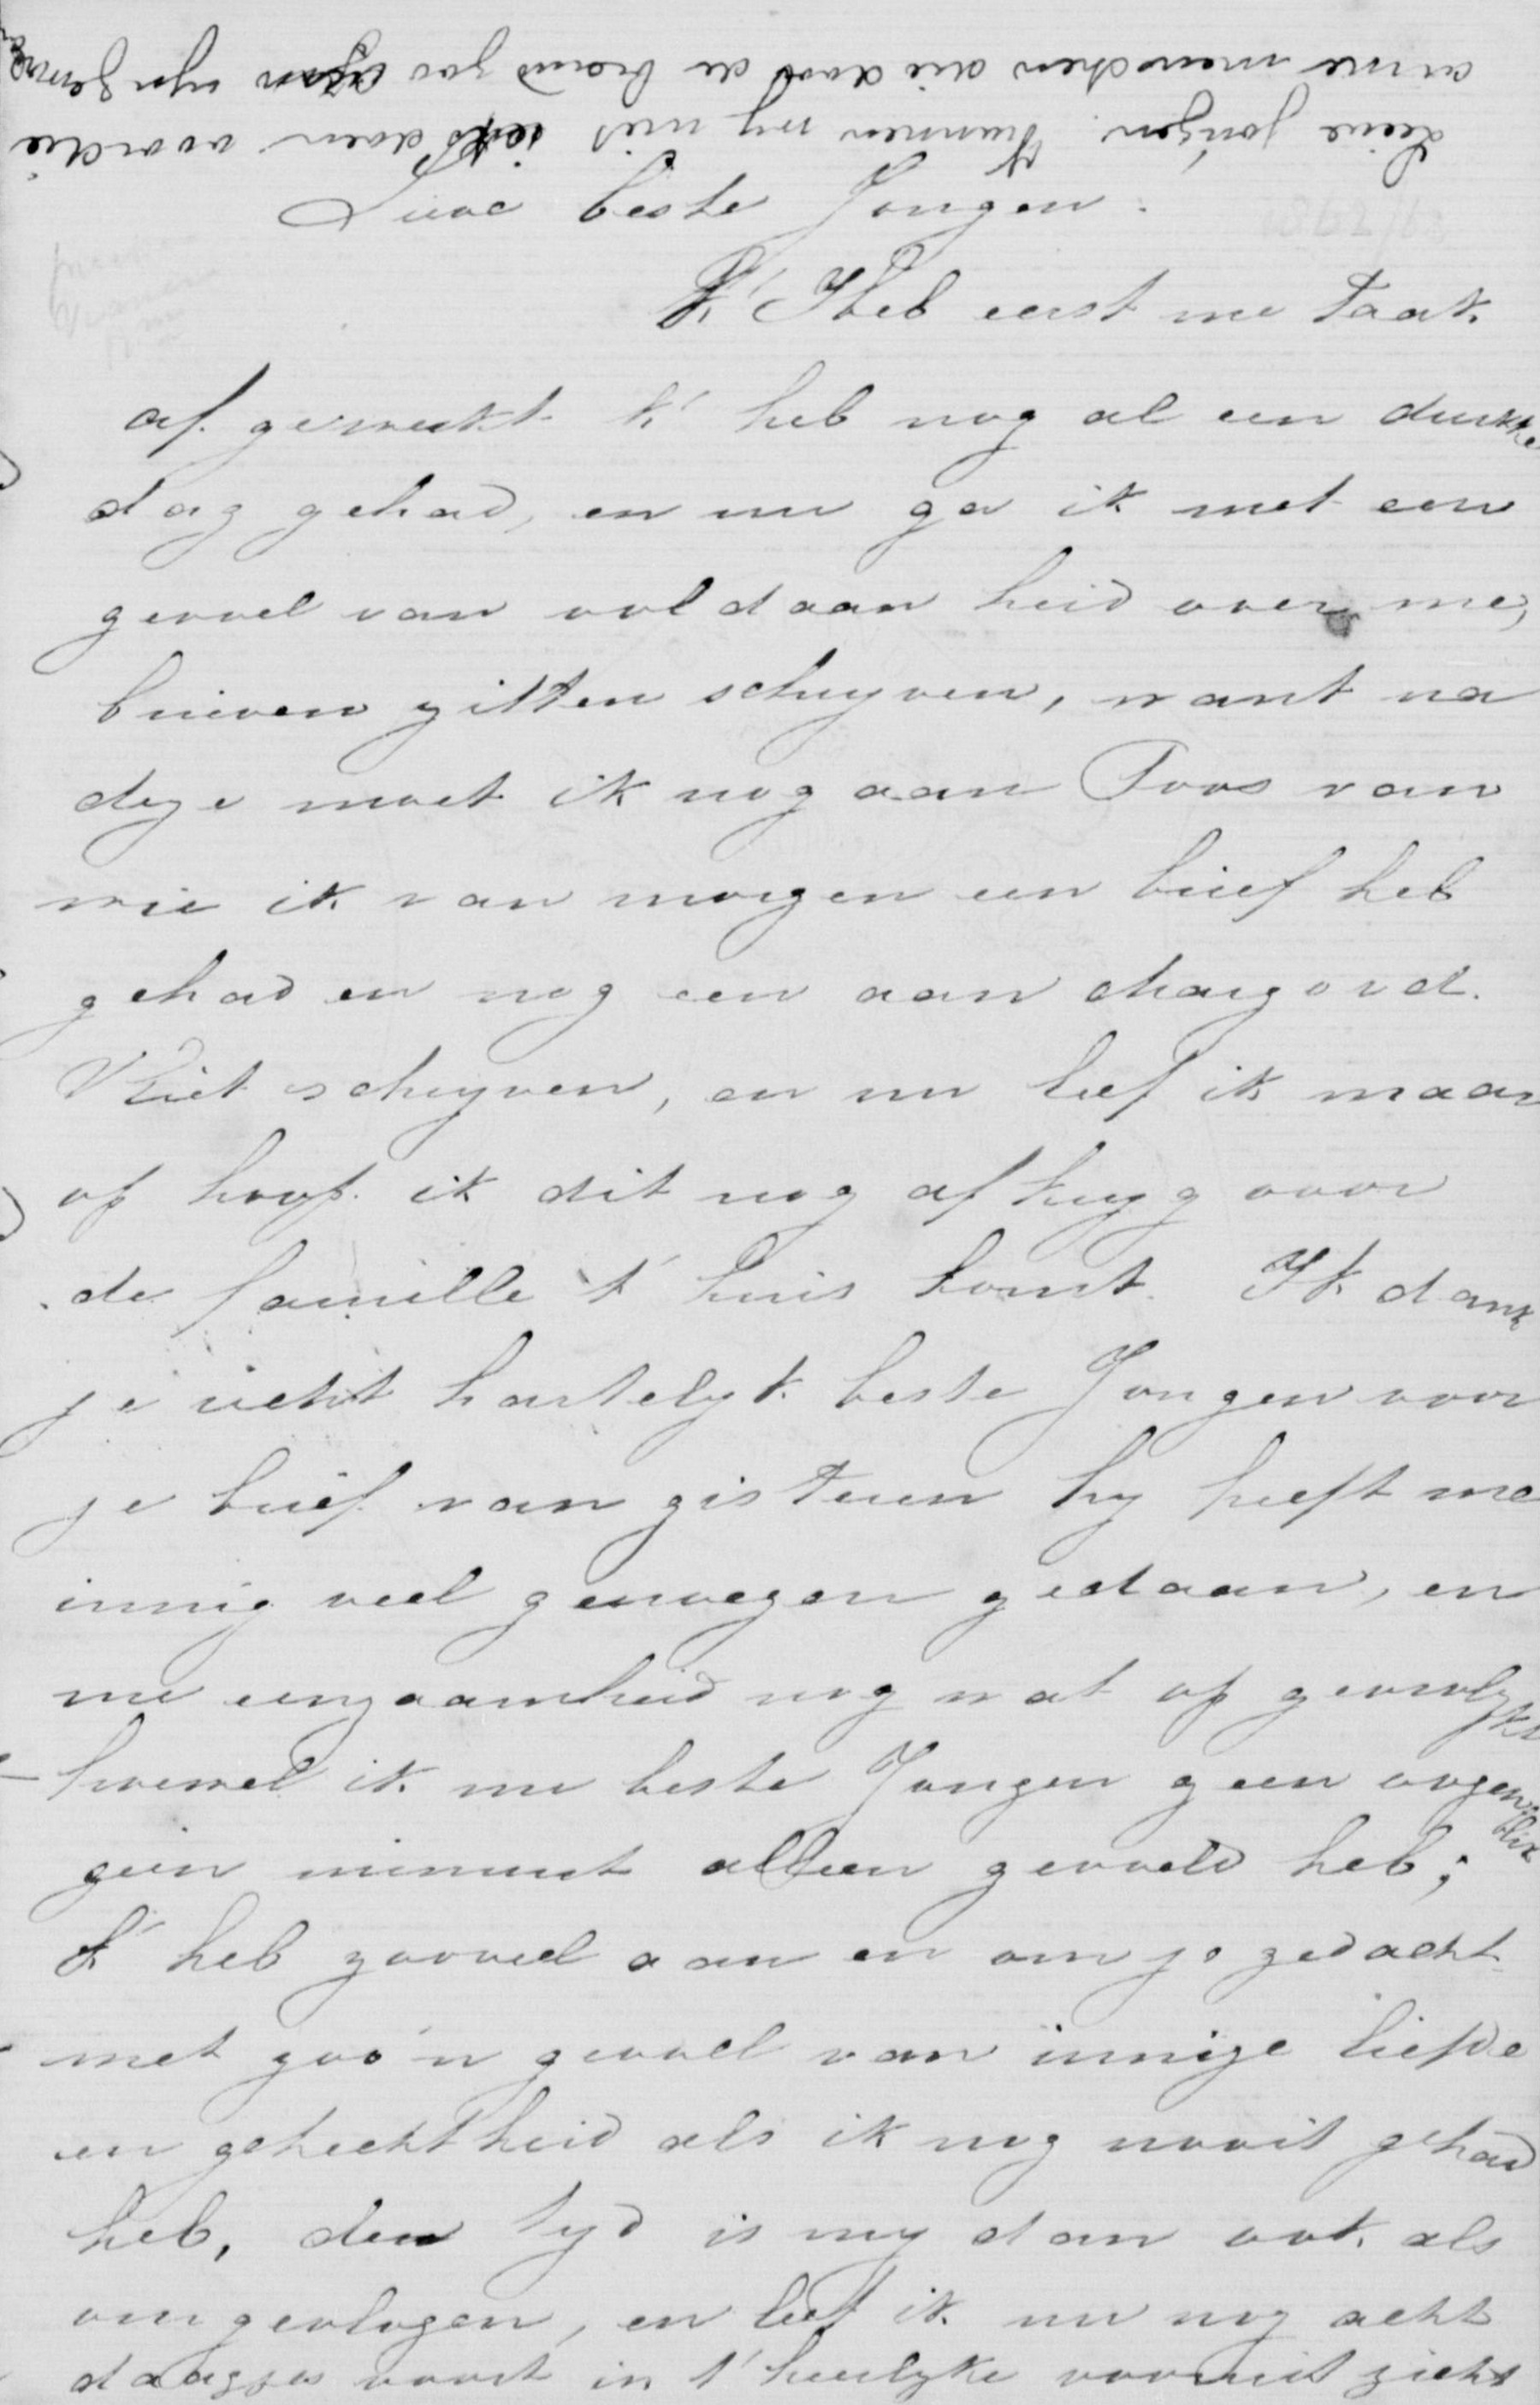 Lieve jongen. Kunnen wy niet iets doen voor die
arme menschen die door de brand zoo
Lieve beste Jongen.
K' Heb eerst me taak
af gewerkt k' heb nog al een drukke
dag gehad, en nu ga ik met een
gevoel van voldaan heid over me,
brieven zitten schryven, want na
deze moet ik nog aan Toos van
wie ik van morgen een brief heb
gehad en nog een aan
Vliet schryven, en nu hoop ik maar
of hoop ik dit nog af kryg voor
de famille t' huis komt. Ik dank
je recht hartelyk beste Jongen voor
je brief van gisteren hy heeft me
innig veel genoegen gedaan, en
me eenzaamheid nog wat op gevrolykt
hoewel ik me beste Jongen geen oogenblik
geen minuut alleen gevoeld heb;
k' heb zooveel aan en om je gedacht
met zoo'n gevoel van innige liefde
en gehechtheid als ik nog nooit gehad
heb, den tyd is my dan ook als
om gevlogen, en leef ik nu nog acht
daagjes voort in t' heerlyke vooruit zicht